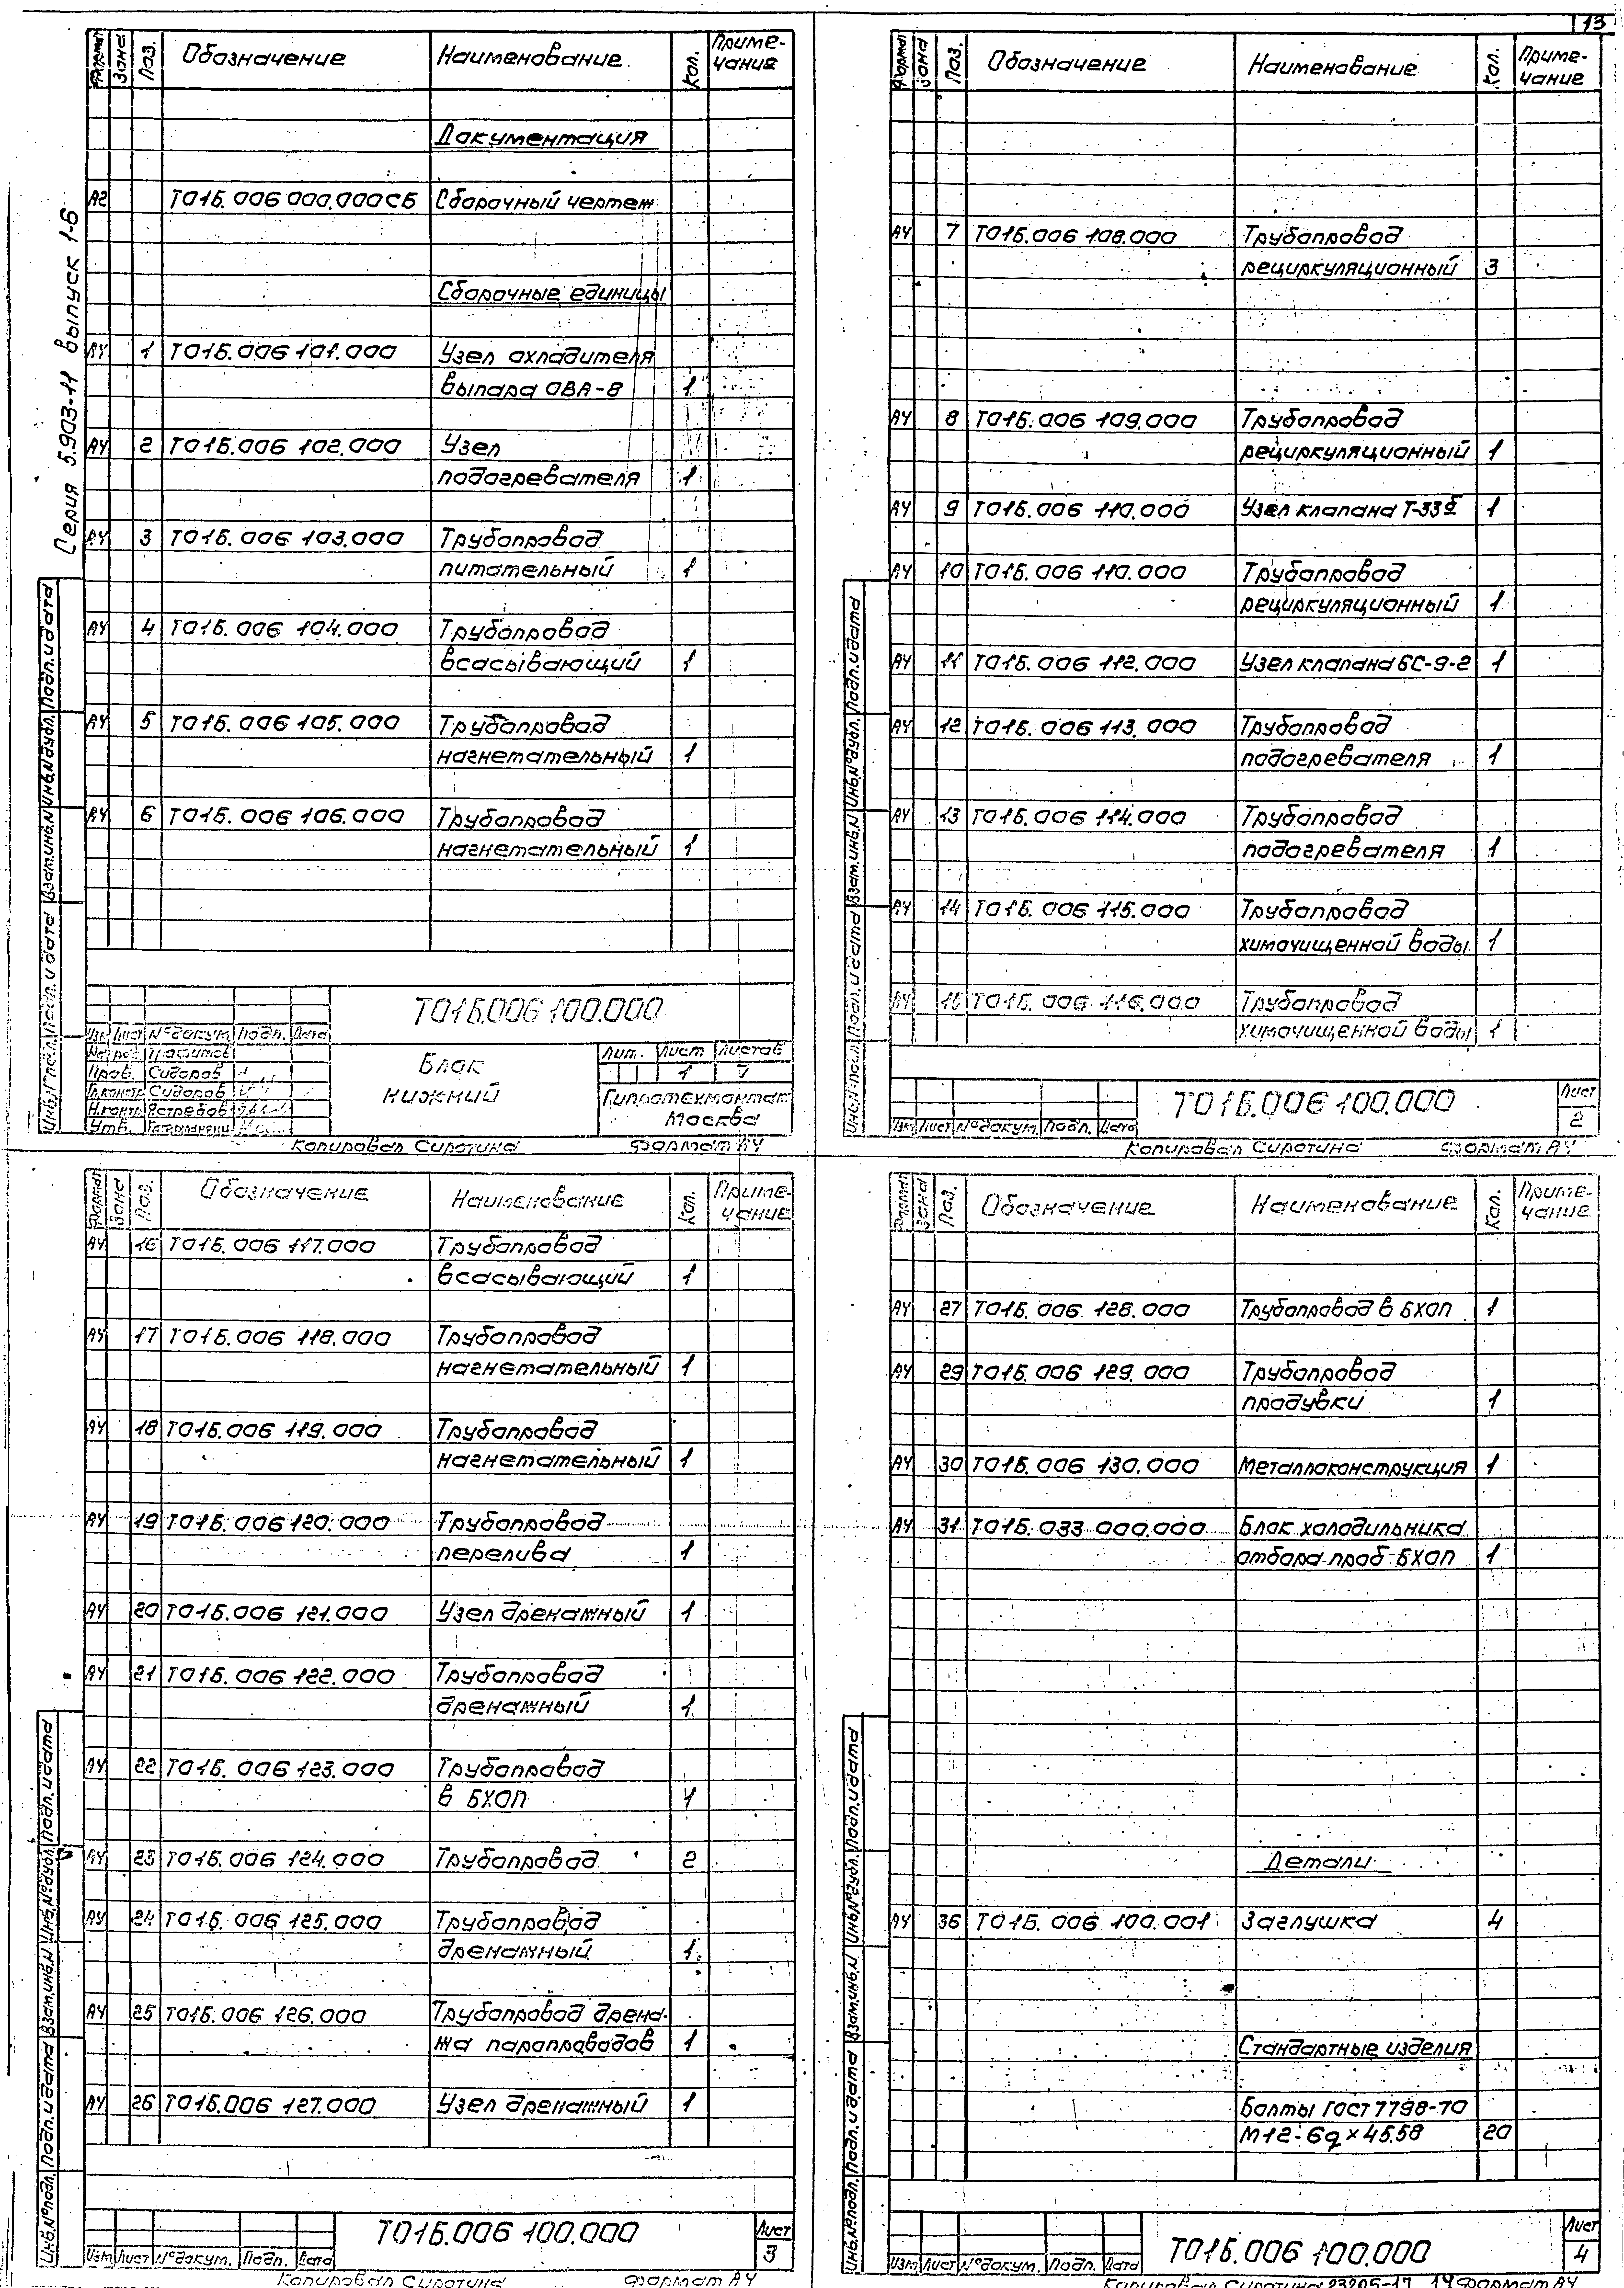 13
Серия 5.903-11 выпуск 1-6
Формат Зона Поз. Обозначение Наименование Кол. Приме-
чание
Документация
А2 Т01Б.006 000.000СБ Сборочный чертеж
Сборочные единицы
А4 1 Т01Б.006 101.000 Узел охладителя
выпара ОВА-8 1
А4 2 Т01Б.006 102.000 Узел
подогревателя 1
А4 3 Т01Б.006 103.000 Трубопровод
питательный 1
А4 4 Т01Б.006 104.000 Трубопровод
всасывающий 1
А4 5 Т01Б.006 105.000 Трубопровод
нагнетательный 1
А4 6 Т01Б.006 106.000 Трубопровод
нагнетательный 1
Инв.№подл. Подп. и дата Взам.инв.№ Инв.№дубл. Подп. и дата
Т01Б.006 100.000
Изм. Лист №докум. Подп. Дата
Пров. Сидоров
Гл.контр. Сидоров
Н.контр. Ястребов
Утв.
Блок
нижний
Лит. Лист Листов
1
Гипротехмонтаж
Москва
Копировал Сиротина Формат А4
Формат Зона Поз. Обозначение Наименование Кол. Приме-
чание
А4 7 Т01Б.006 108.000 Трубопровод
рециркуляционный 3
А4 8 Т01Б.006 109.000 Трубопровод
рециркуляционный 1
А4 9 Т01Б.006 110.000 Узел клапана Т-33б 1
А4 10 Т01Б.006 110.000 Трубопровод
рециркуляционный 1
А4 11 Т01Б.006 112.000 Узел клапана БС-9-2 1
А4 12 Т01Б.006 113.000 Трубопровод
подогревателя 1
А4 13 Т01Б.006 114.000 Трубопровод
подогревателя 1
А4 14 Т01Б.006 115.000 Трубопровод
химочищенной воды 1
А4 15 Т01Б.006 116.000 Трубопровод
химочищенной воды 1
Инв.№подл. Подп. и дата Взам.инв.№ Инв.№дубл. Подп. и дата
Изм. Лист №докум. Подп. Дата
Т01Б.006 100.000
Лист
2
Копировал Сиротина Формат А4
Формат Зона Поз. Обозначение Наименование Кол. Приме-
чание
А4 16 Т01Б.006 117.000 Трубопровод
всасывающий 1
А4 17 Т01Б.006 118.000 Трубопровод
нагнетательный 1
А4 18 Т01Б.006 119.000 Трубопровод
нагнетательный 1
А4 19 Т01Б.006 120.000 Трубопровод
перелива 1
А4 20 Т01Б.006 121.000 Узел дренажный 1
А4 21 Т01Б.006 122.000 Трубопровод
дренажный 1
А4 22 Т01Б.006 123.000 Трубопровод
в БХОП 1
А4 23 Т01Б.006 124.000 Трубопровод 2
А4 24 Т01Б.006 125.000 Трубопровод
дренажный 1
А4 25 Т01Б.006 126.000 Трубопровод дрена-
жа паропроводов 1
А4 26 Т01Б.006 127.000 Узел дренажный 1
Инв.№подл. Подп. и дата Взам.инв.№ Инв.№дубл. Подп. и дата
Изм. Лист №докум. Подп. Дата
Т01Б.006 100.000
Лист
3
Копировал Сиротина Формат А4
Формат Зона Поз. Обозначение Наименование Кол. Приме-
чание
А4 27 Т01Б.006 128.000 Трубопровод в БХОП 1
А4 29 Т01Б.006 129.000 Трубопровод
продувки 1
А4 30 Т01Б.006 130.000 Металлоконструкция 1
А4 31 Т01Б.033 000.000 Блок холодильника
отбора проб БХОП 1
Детали
А4 36 Т01Б.006 100.001 Заглушка 4
Стандартные изделия
Болты ГОСТ 7798-70
М12-6g×45.58 20
Инв.№подл. Подп. и дата Взам.инв.№ Инв.№дубл. Подп. и дата
Изм. Лист №докум. Подп. Дата
Т01Б.006 100.000
Лист
4
Копировал Сиротина 23205-17 14 Формат А4